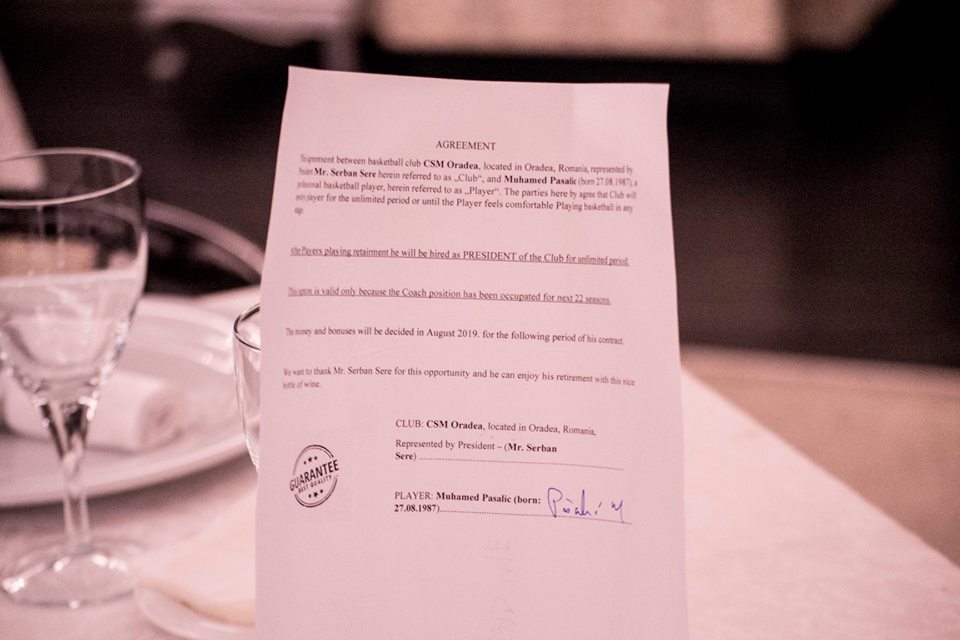 AGREEMENT
This agreement between basketball club CSM Oradea, located in Oradea, Romania, represented by
President Mr. Serban Sere herein referred to as „Club", and Muhamed Pasalic (born 27.08.1987), a
professional basketball player, herein referred to as „Player". The parties here by agree that Club will
employ player for the unlimited period or until the Player feels comfortable Playing basketball in any
age.
After Players playing retairment he will be hired as PRESIDENT of the Club for unlimited period.
This option is valid only because the Coach position has been occupated for next 22 seasons.
The money and bonuses will be decided in August 2019. for the following period of his contract.
We want to thank Mr. Serban Sere for this opportunity and he can enjoy his retirement with this nice
bottle of wine.
CLUB: CSM Oradea, located in Oradea, Romania,
Represented by President – (Mr. Serban
Sere)
GUARANTEE
BEST QUALITY
PLAYER: Muhamed Pasalic (born:
27.08.1987)